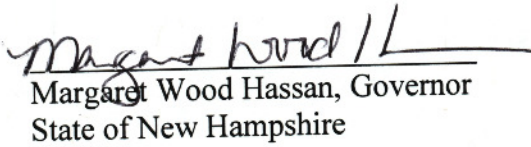 Margaret Wood H
Margaret Wood Hassan, Governor
State of New Hampshire